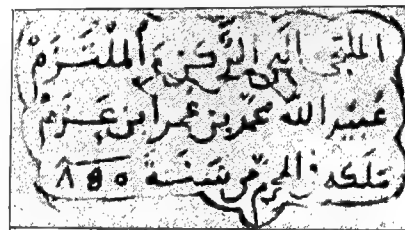 الملتجئ الى الركن و الملتزم
عبيد الله محمد بن عمر ابن عزم
ملكه في المحرم من سنة ٨٥٥